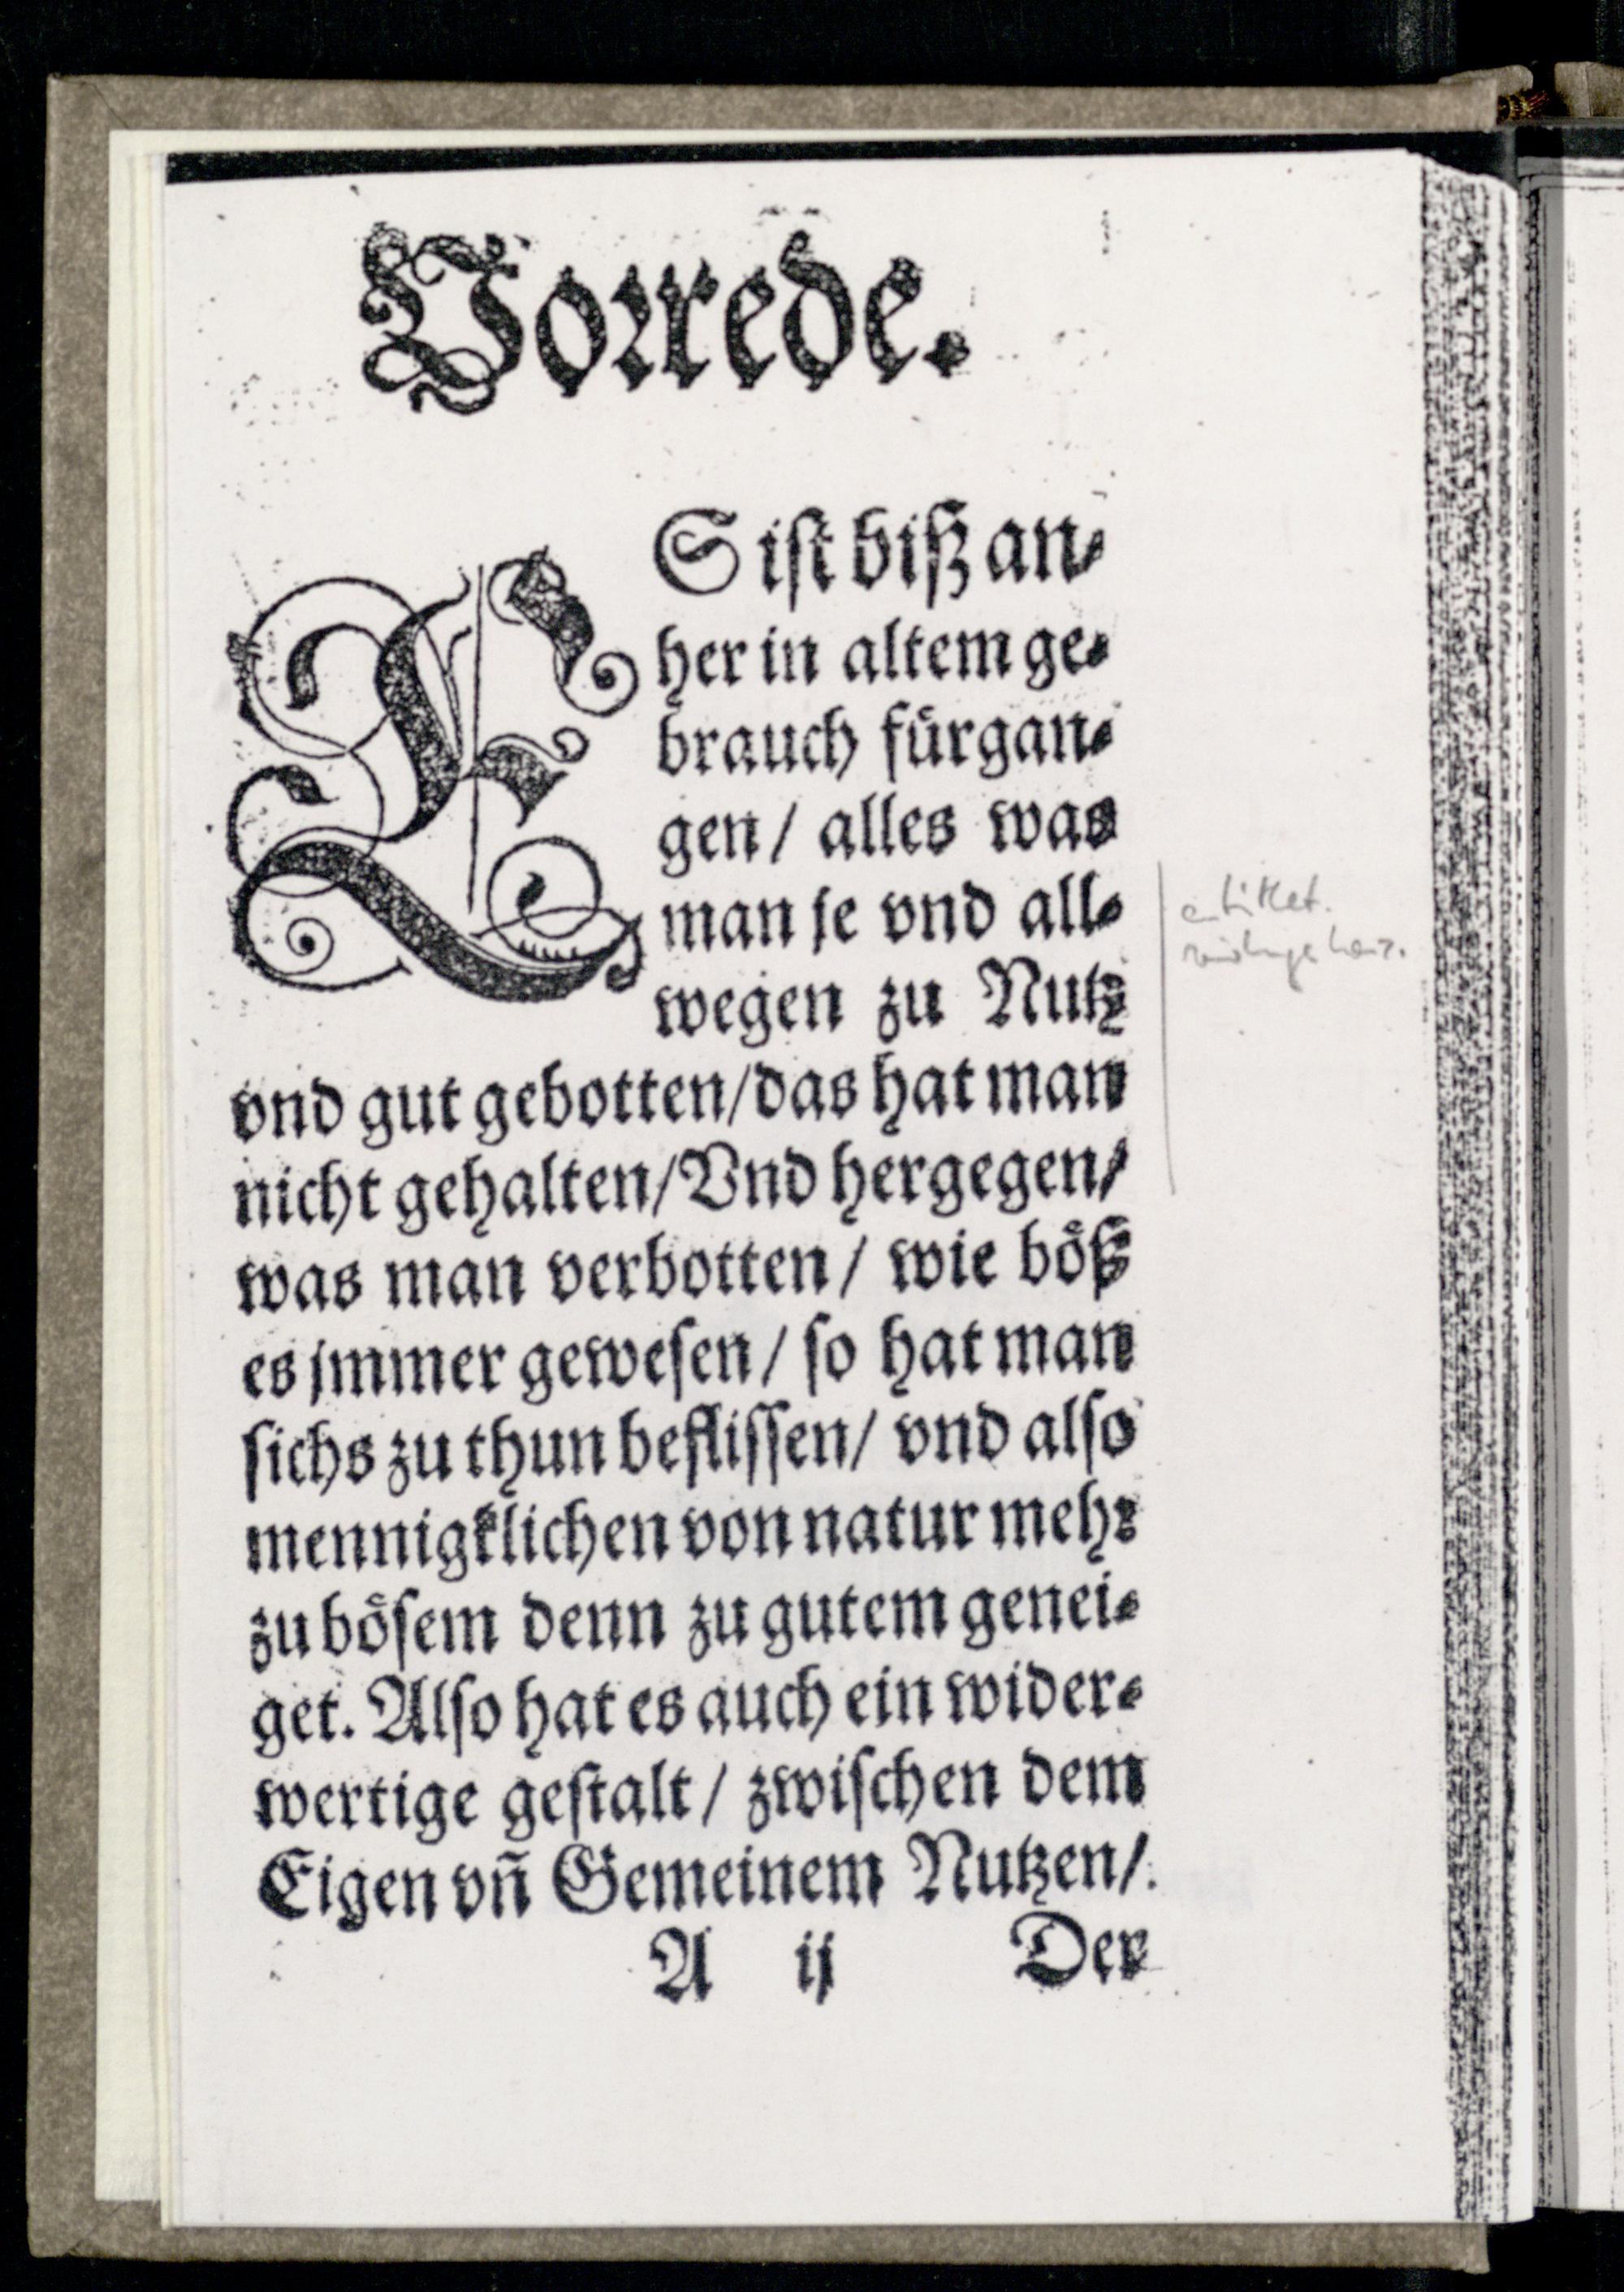 Vorrede.
ES ist biß an⸗
her in altem ge⸗
brauch fürgan⸗
gen / alles was
man je vnd all⸗
wegen zu Nutz
vnd gut gebotten/das hat man
nicht gehalten/Vnd hergegen/
was man verbotten / wie böß
es jmmer gewesen / so hat man
sichs zu thun beflissen/ vnd also
mennigklichen von natur mehr
zu bösem denn zu gutem genei⸗
get. Also hat es auch ein wider⸗
wertige gestalt / zwischen dem
Eigen vn̄ Gemeinem Nutzen/
A ij Der